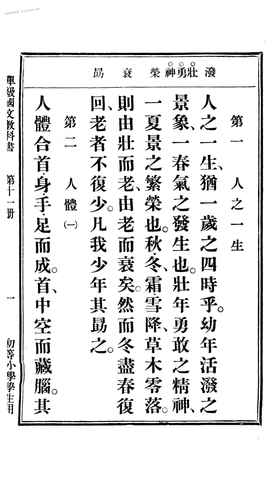 潑 壯 勇 神 榮 衰 勗
第一 人之一生
人之一生、猶一歲之四時乎。幼年活潑之
景象、一春氣之發生也。壯年勇敢之精神、
一夏景之繁榮也。秋冬霜雪降、草木零落。
則由壯而老、由老而衰矣。然而冬盡春復
回、老者不復少。凡我少年其勗之。
第二 人體(一)
人體合首身手足而成。首、中空而藏腦。其
單級國文教科書 第十一册 一 初等小學學生用